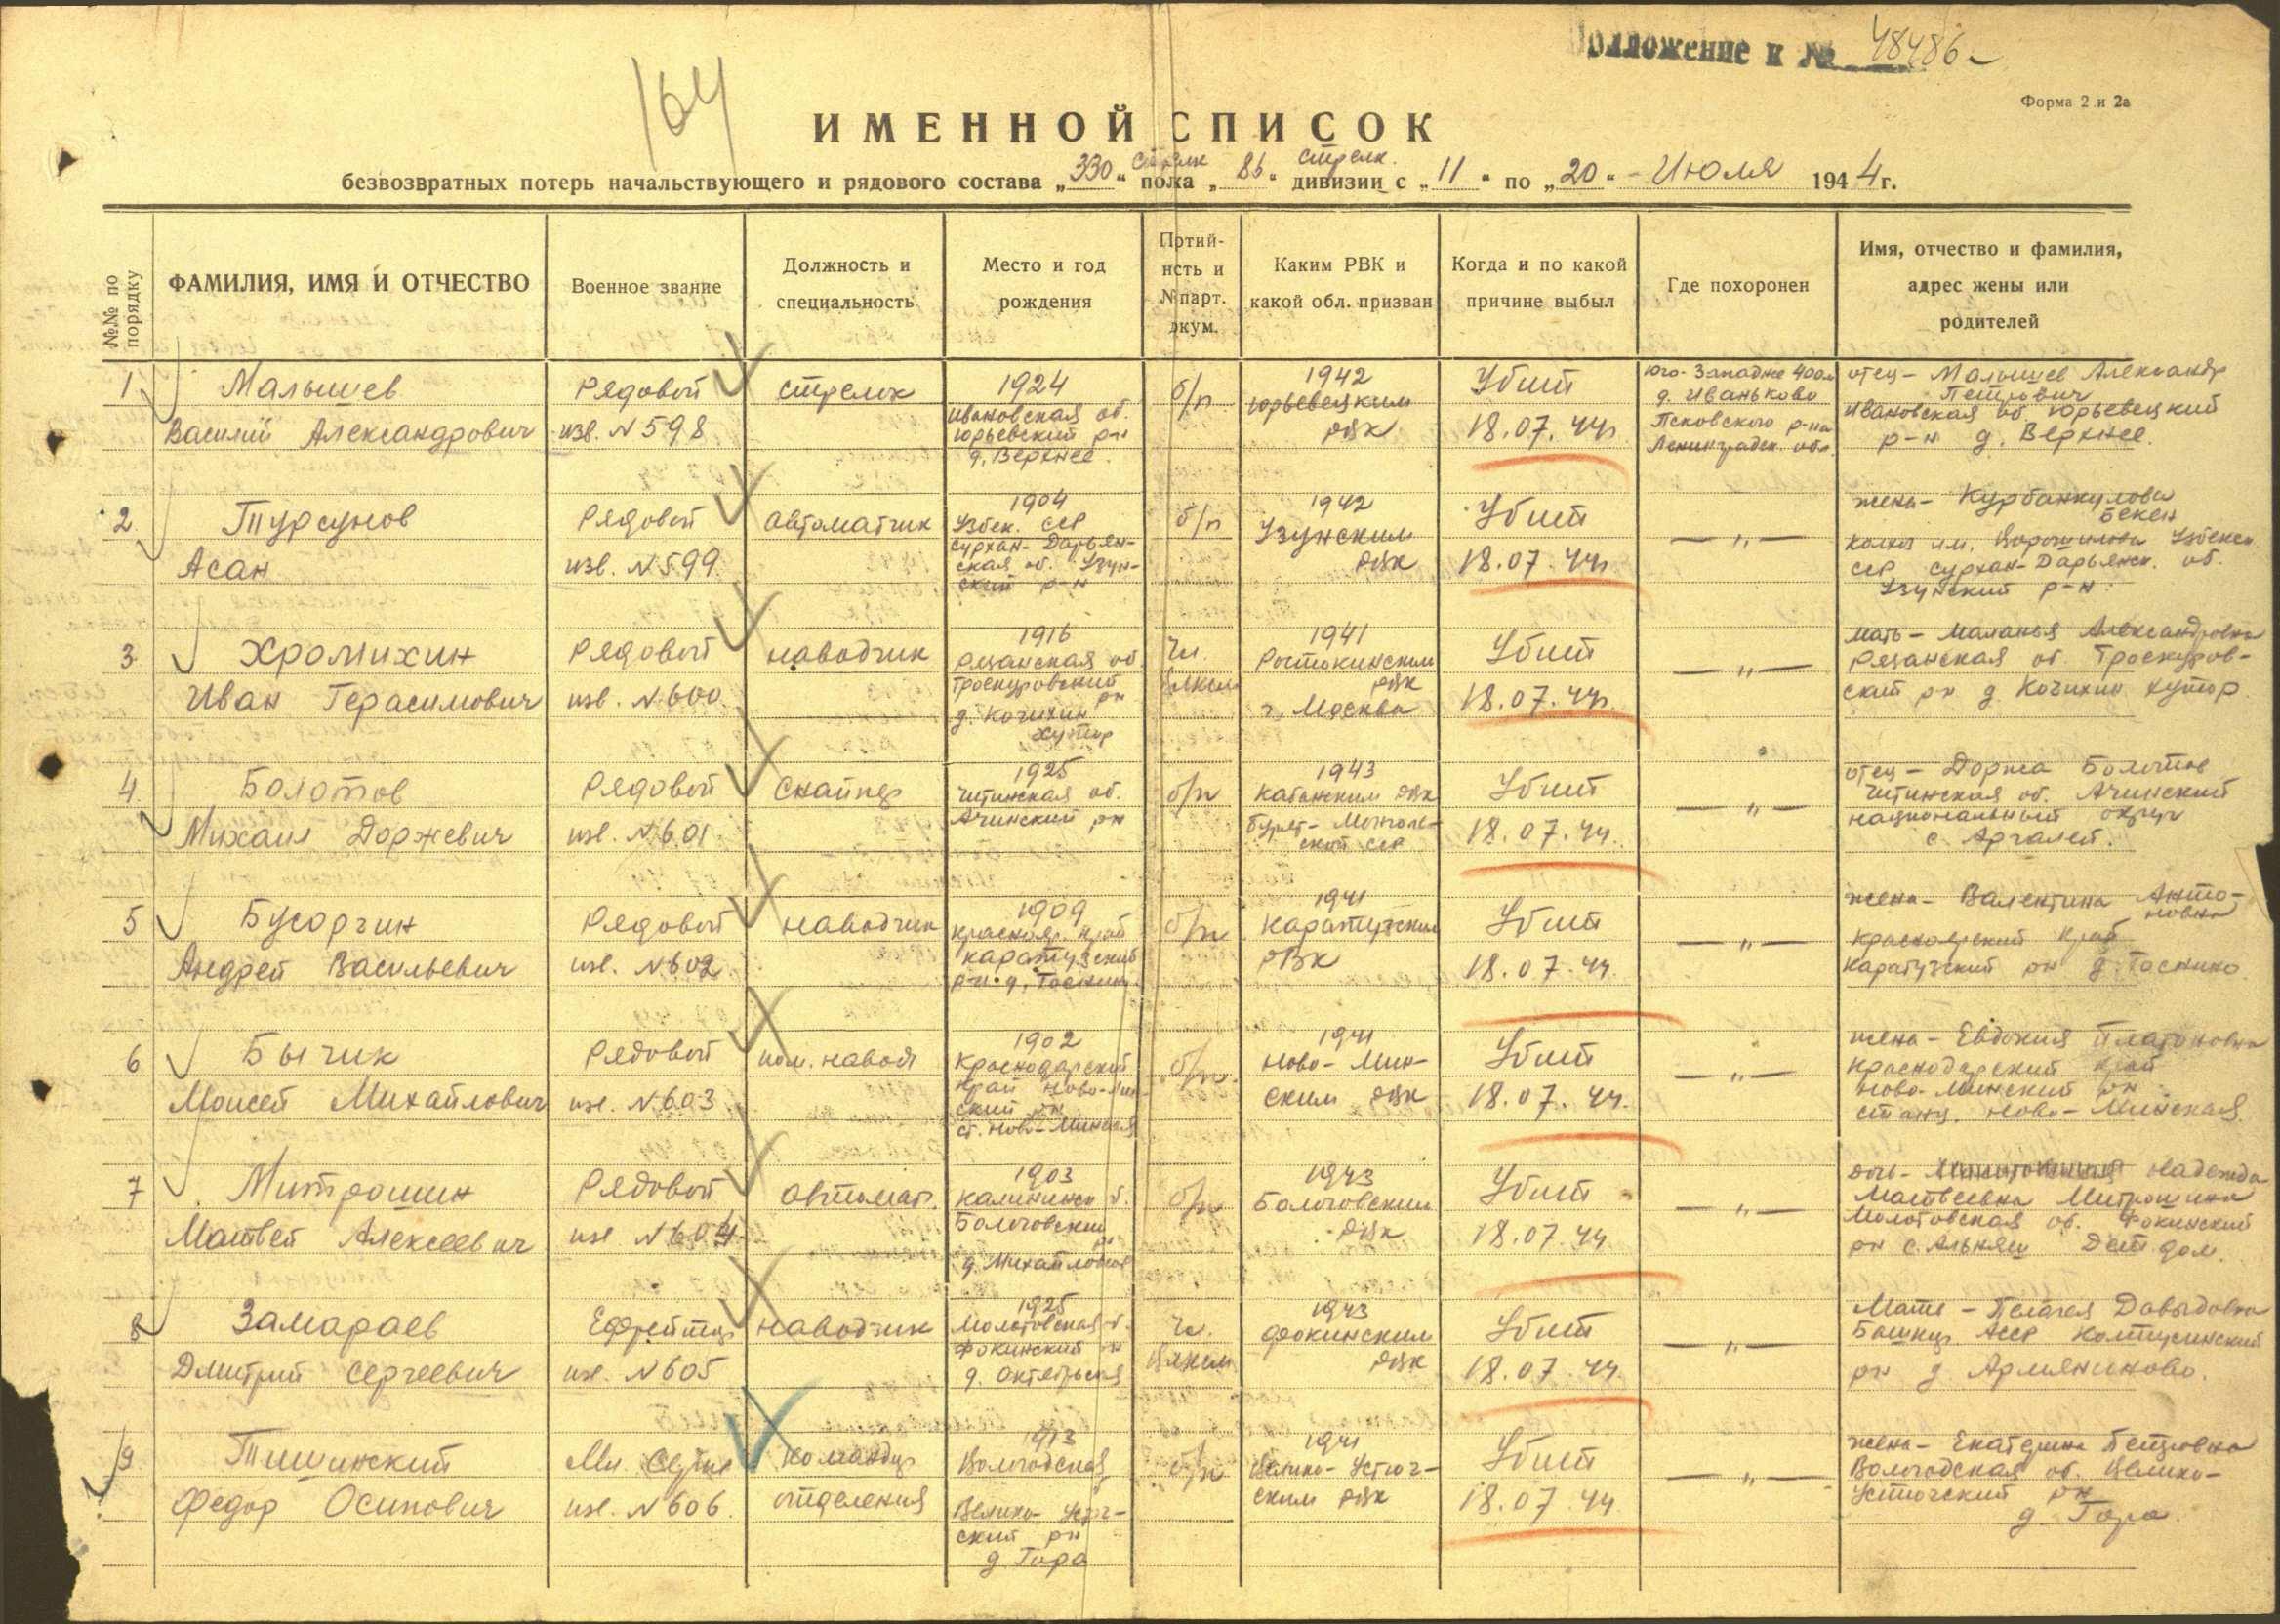 Приложение к № 48486
164
Форма 2 и 2а
ИМЕННОЙ СПИСОК
безвозвратных потерь начальствующего и рядового состава „330“ стрелк полка „86“ стрелк. дивизии с „11“ по „20“ Июля 1944 г.
№№ по порядку
ФАМИЛИЯ, ИМЯ И ОТЧЕСТВО
Военное звание
Должность и
специальность
Место и год
рождения
Партий-
ность и
№ парт.
докум.
Каким РВК и
какой обл. призван
Когда и по какой
причине выбыл
Где похоронен
Имя, отчество и фамилия,
адрес жены или
родителей
1
Малышев
Василий Александрович
Рядовой
изв. №598
стрелок
1924
Ивановская об.
Юрьевский р-н
д. Верхнее
б/п
1942
Юрьевецким
РВК
Убит
18.07.44г.
Юго-Западнее 400м
д. Иваньково
Псковского р-на
Ленинградск. обл.
отец - Малышев Александр
Петрович
Ивановская об Юрьевецкий
р-н д. Верхнее.
2.
Турсунов
Асан
Рядовой
изв. №599
автоматчик
1904
Узбек. ССР
Сурхан-Дарьин-
ская об. Узун-
ский р-н
б/п
1942
Узунским
РВК
Убит
18.07.44г
— „ —
жена - Курбанкулова
Бекен
колхоз им. Ворошилова Узбекск
ССР Сурхан-Дарьинск. об.
Узунский р-н.
3.
Хромихин
Иван Герасимович
Рядовой
изв. №600
наводчик
1916
Рязанская об.
Троекуровский
рн
д. Кочихин
хутор
Чл.
ВЛКСМ
1941
Ростокинским
РВК
г. Москва
Убит
18.07.44г.
— „ —
мать - Маланья Александровна
Рязанская об. Троекуров-
ский рн д Кочихин хутор
4.
Болотов
Михаил Доржевич
Рядовой
изв. №601
Снайпер
1925
Читинская об.
Ачинский рн
б/п
1943
Кабанским РВК
Бурят-Монголь-
ской ССР
Убит
18.07.44.
— „ —
отец - Доржа Болотов
Читинская об. Ачинский
национальный округ
с. Аргалей.
5
Бусоргин
Андрей Васильевич
Рядовой
изв. №602
наводчик
1909
Краснояр. край
Каратузский
р-н. д. Таскин
б/п
1941
Каратузским
РВК
Убит
18.07.44.
— „ —
жена - Валентина Анто-
новна
Красноярский край
Каратузский рн д. Таскино
6
Бычик
Моисей Михайлович
Рядовой
изв. №603
пом. навод
1902
Краснодарский
край Ново-Мин-
ский рн
ст. Ново-Минская
б/п.
1941
Ново-Мин-
ским РВК
Убит
18.07.44.
— „ —
жена - Евдокия Платоновна
Краснодарский край
Ново-Минский рн
станц. Ново-Минская
7
Митрошин
Матвей Алексеевич
Рядовой
изв. №604
автомат.
1903
Калининск о.
Бологовский
рн
д. Михайловка
б/п
1943
Бологовским
РВК
Убит
18.07.44
— „ —
дочь - Надежда
Матвеевна Митрошина
Молотовская об. Фокинский
рн с. Альняш Дет дом.
8
Замараев
Дмитрий Сергеевич
Ефрейтор
изв. №605
наводчик
1925
Молотовская о.
Фокинский рн
д. Октябрьская
Чл.
ВЛКСМ
1943
Фокинским
РВК
Убит
18.07.44
— „ —
Мать - Пелагея Давыдовна
Башкир АССР Калтасинский
рн д Армяниково.
9
Тишинский
Федор Осипович
Мл. Сержа
изв. №606.
Командир
отделения
1913
Вологодская
Велико-Устюг-
ский рн
д Гора
б/п
1941
Велико-Устюг-
ским РВК
Убит
18.07.44
— „ —
жена - Екатерина Петровна
Вологодская об. Велико-
Устюгский рн
д Гора.